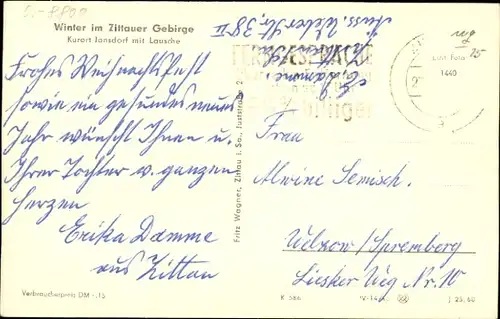 Winter im Zittauer Gebirge
Kurort Jonsdorf mit Lausche
Frohes Weihnachtsfest
sowie ein gesundes neues
Jahr wünscht Ihnen u.
Ihrer Tochter v. ganzen
Herzen
Erika Damme
aus Zittau
Verbraucherpreis DM -,15
Fritz Wagner, Zittau i. Sa., Juststraße 2
FERNGESPRÄCHE
billiger
Echt Foto
1440
Frau
Alwine Semisch.
Welzow/Spremberg
Liesker Weg Nr. 10
K 586
J 25, 60